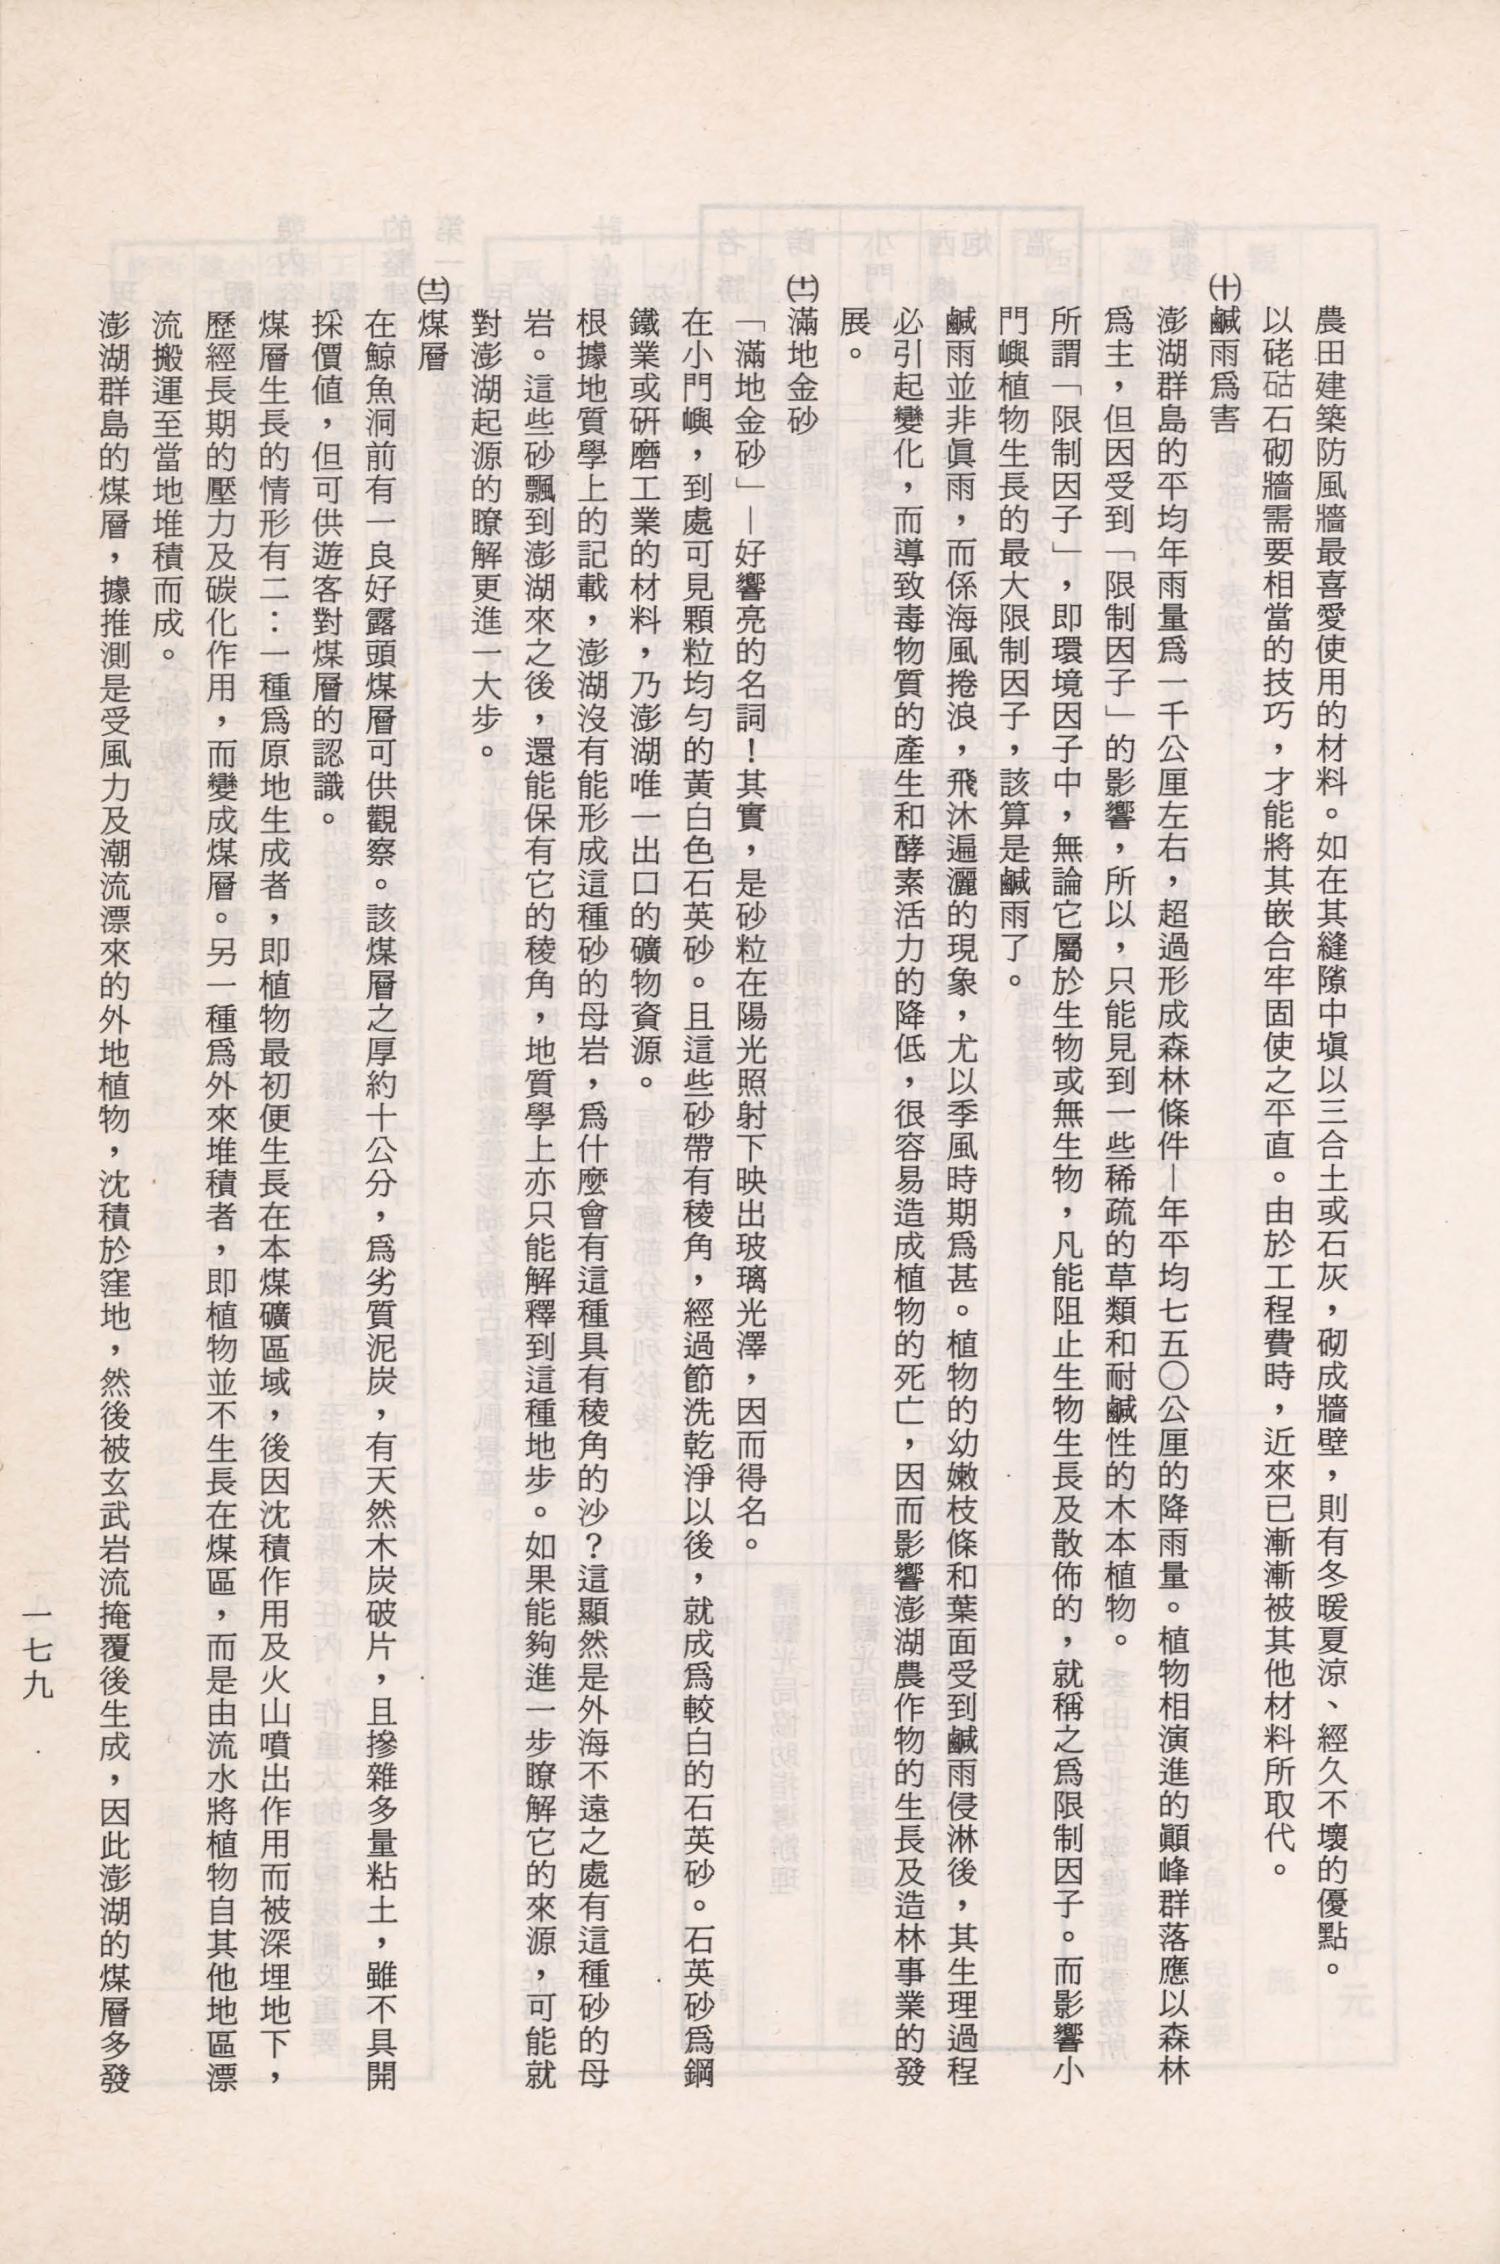 農田建築防風牆最喜愛使用的材料。如在其縫隙中塡以三合土或石灰，砌成牆壁，則有冬暖夏涼、經久不壞的優點。
以硓𥑮石砌牆需要相當的技巧，才能將其嵌合牢固使之平直。由於工程費時，近來已漸漸被其他材料所取代。
㈩鹹雨爲害
澎湖群島的平均年雨量爲一千公厘左右，超過形成森林條件—年平均七五〇公厘的降雨量。植物相演進的顚峰群落應以森林
爲主，但因受到「限制因子」的影響，所以，只能見到一些稀疏的草類和耐鹹性的木本植物。
所謂「限制因子」，即環境因子中，無論它屬於生物或無生物，凡能阻止生物生長及散佈的，就稱之爲限制因子。而影響小
門嶼植物生長的最大限制因子，該算是鹹雨了。
鹹雨並非眞雨，而係海風捲浪，飛沐遍灑的現象，尤以季風時期爲甚。植物的幼嫩枝條和葉面受到鹹雨侵淋後，其生理過程
必引起變化，而導致毒物質的產生和酵素活力的降低，很容易造成植物的死亡，因而影響澎湖農作物的生長及造林事業的發
展。
(十一)滿地金砂
「滿地金砂」—好響亮的名詞！其實，是砂粒在陽光照射下映出玻璃光澤，因而得名。
在小門嶼，到處可見顆粒均匀的黃白色石英砂。且這些砂帶有稜角，經過節洗乾淨以後，就成爲較白的石英砂。石英砂爲鋼
鐵業或硏磨工業的材料，乃澎湖唯一出口的礦物資源。
根據地質學上的記載，澎湖沒有能形成這種砂的母岩，爲什麼會有這種具有稜角的沙？這顯然是外海不遠之處有這種砂的母
岩。這些砂飄到澎湖來之後，還能保有它的稜角，地質學上亦只能解釋到這種地步。如果能夠進一步瞭解它的來源，可能就
對澎湖起源的瞭解更進一大步。
(十二)煤層
在鯨魚洞前有一良好露頭煤層可供觀察。該煤層之厚約十公分，爲劣質泥炭，有天然木炭破片，且摻雜多量粘土，雖不具開
採價値，但可供遊客對煤層的認識。
煤層生長的情形有二：一種爲原地生成者，即植物最初便生長在本煤礦區域，後因沈積作用及火山噴出作用而被深埋地下，
歷經長期的壓力及碳化作用，而變成煤層。另一種爲外來堆積者，即植物並不生長在煤區，而是由流水將植物自其他地區漂
流搬運至當地堆積而成。
澎湖群島的煤層，據推測是受風力及潮流漂來的外地植物，沈積於窪地，然後被玄武岩流掩覆後生成，因此澎湖的煤層多發
一七九